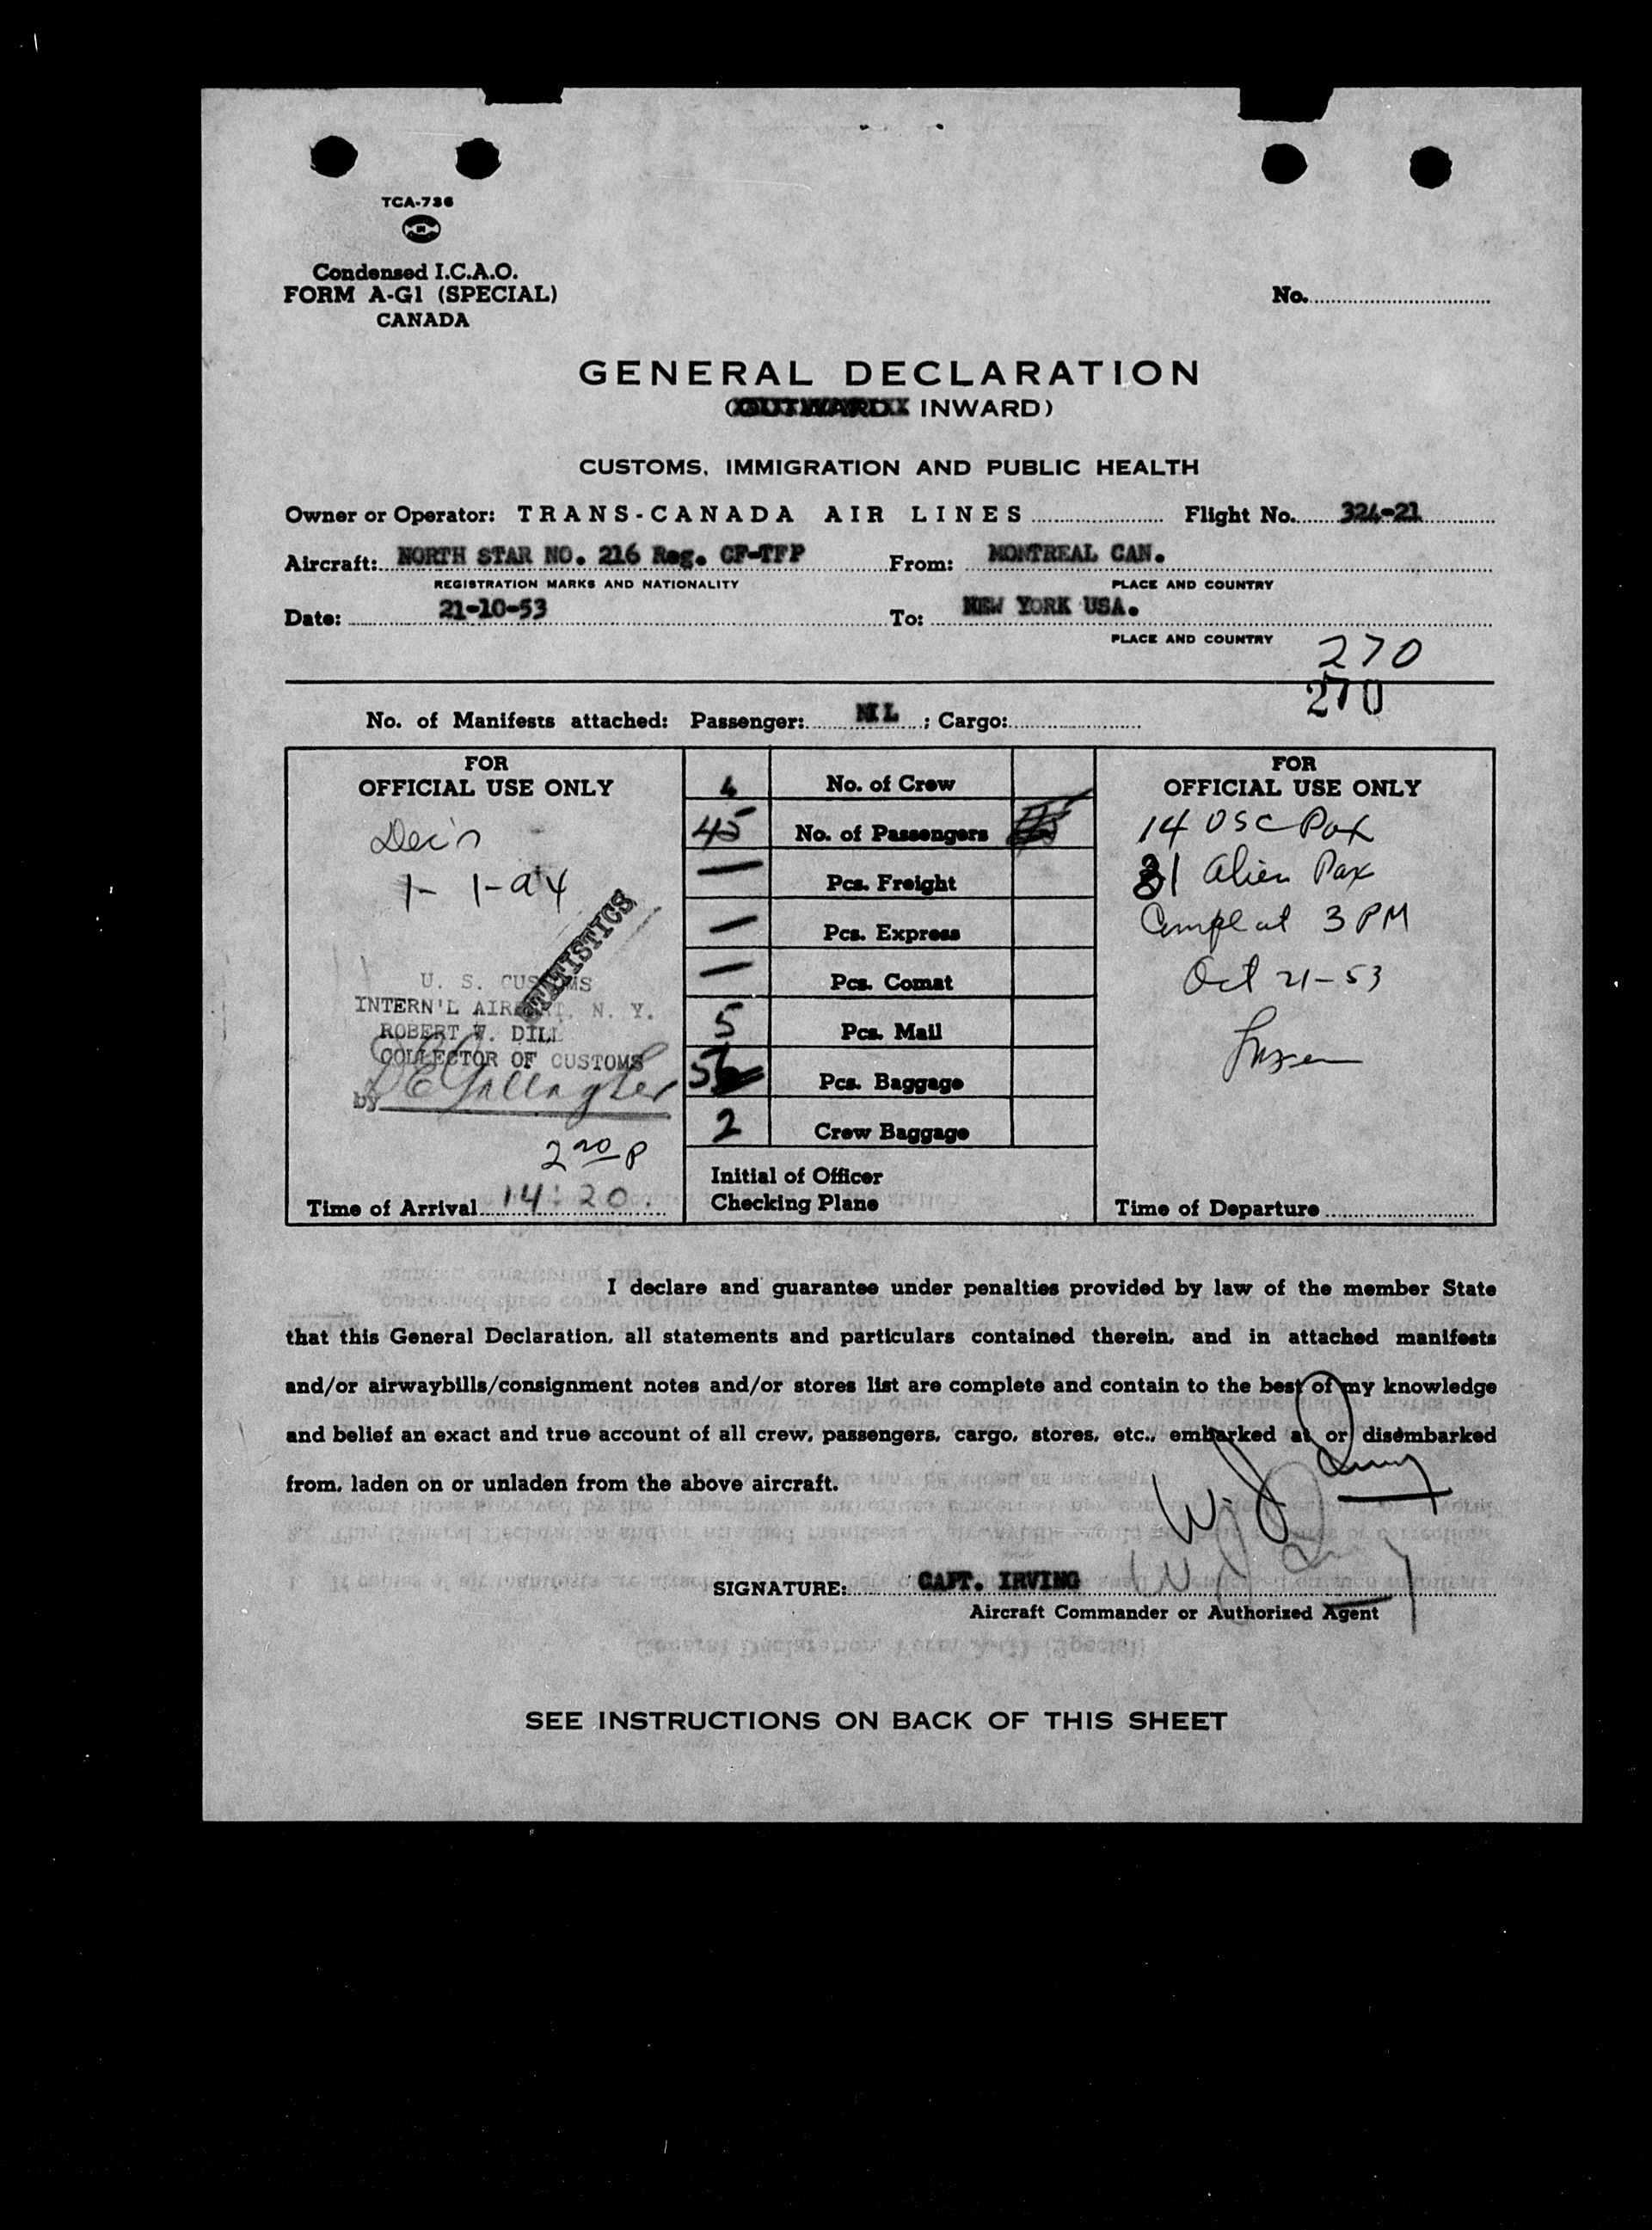 TCA-736
Condensed I.C.A.O.
FORM A-G1 (SPECIAL)
CANADA
No.
GENERAL DECLARATION
(OUTWARD INWARD)
CUSTOMS, IMMIGRATION AND PUBLIC HEALTH
Owner or Operator: TRANS-CANADA AIR LINES Flight No. 324-21
Aircraft: NORTH STAR NO. 216 Reg. CF-TFP From: MONTREAL CAN.
REGISTRATION MARKS AND NATIONALITY PLACE AND COUNTRY
Date: 21-10-53 To: NEW YORK USA.
PLACE AND COUNTRY
270
270
No. of Manifests attached: Passenger: NIL ; Cargo:
FOR
OFFICIAL USE ONLY
Dec'n
1- 1-a'4
STATISTICS
U. S. CUSTOMS
INTERN'L AIRPORT, N. Y.
ROBERT W. DILL
COLLECTOR OF CUSTOMS
by D E Gallagher
2 20 P
Time of Arrival 14:20.
4 No. of Crew
45 No. of Passengers
— Pcs. Freight
— Pcs. Express
— Pcs. Comat
5 Pcs. Mail
Pcs. Baggage
2 Crew Baggage
Initial of Officer
Checking Plane
FOR
OFFICIAL USE ONLY
14 USC Pax
31 Alien Pax
Compl at 3 PM
Oct 21-53
Time of Departure
I declare and guarantee under penalties provided by law of the member State
that this General Declaration, all statements and particulars contained therein, and in attached manifests
and/or airwaybills/consignment notes and/or stores list are complete and contain to the best of my knowledge
and belief an exact and true account of all crew, passengers, cargo, stores, etc., embarked at or disembarked
from, laden on or unladen from the above aircraft.
SIGNATURE: CAPT. IRVING
Aircraft Commander or Authorized Agent
SEE INSTRUCTIONS ON BACK OF THIS SHEET